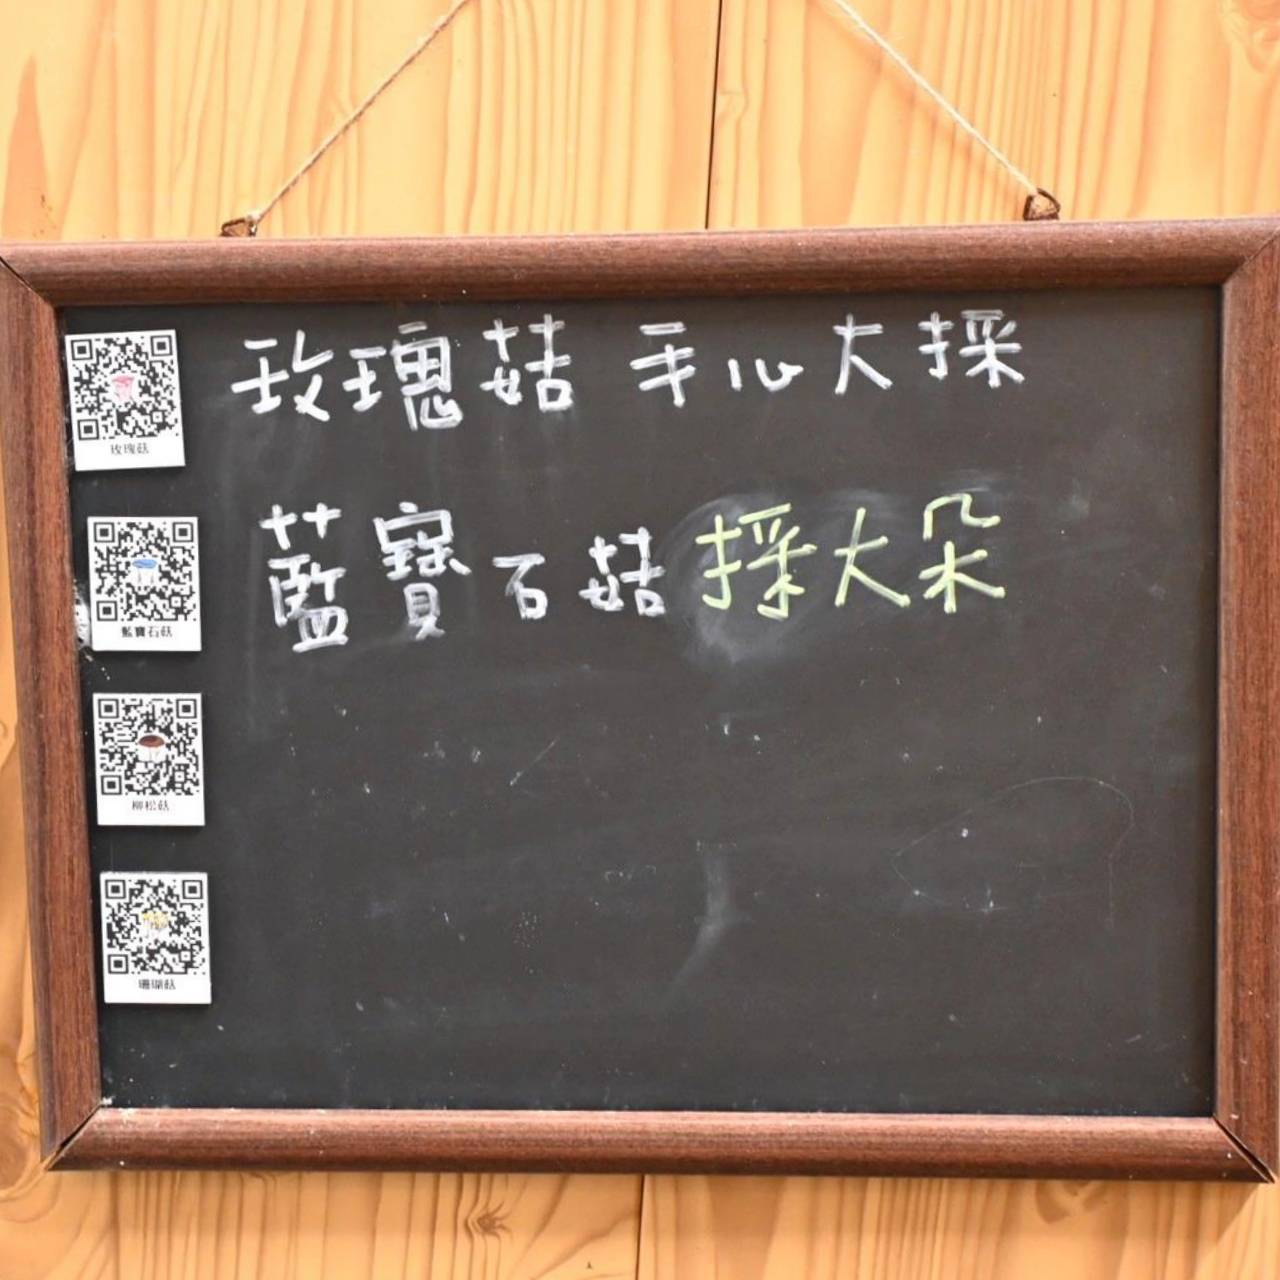 玫瑰菇 手心大採
玫瑰菇
藍寶石菇 採大朵
藍寶石菇
柳松菇
珊瑚菇